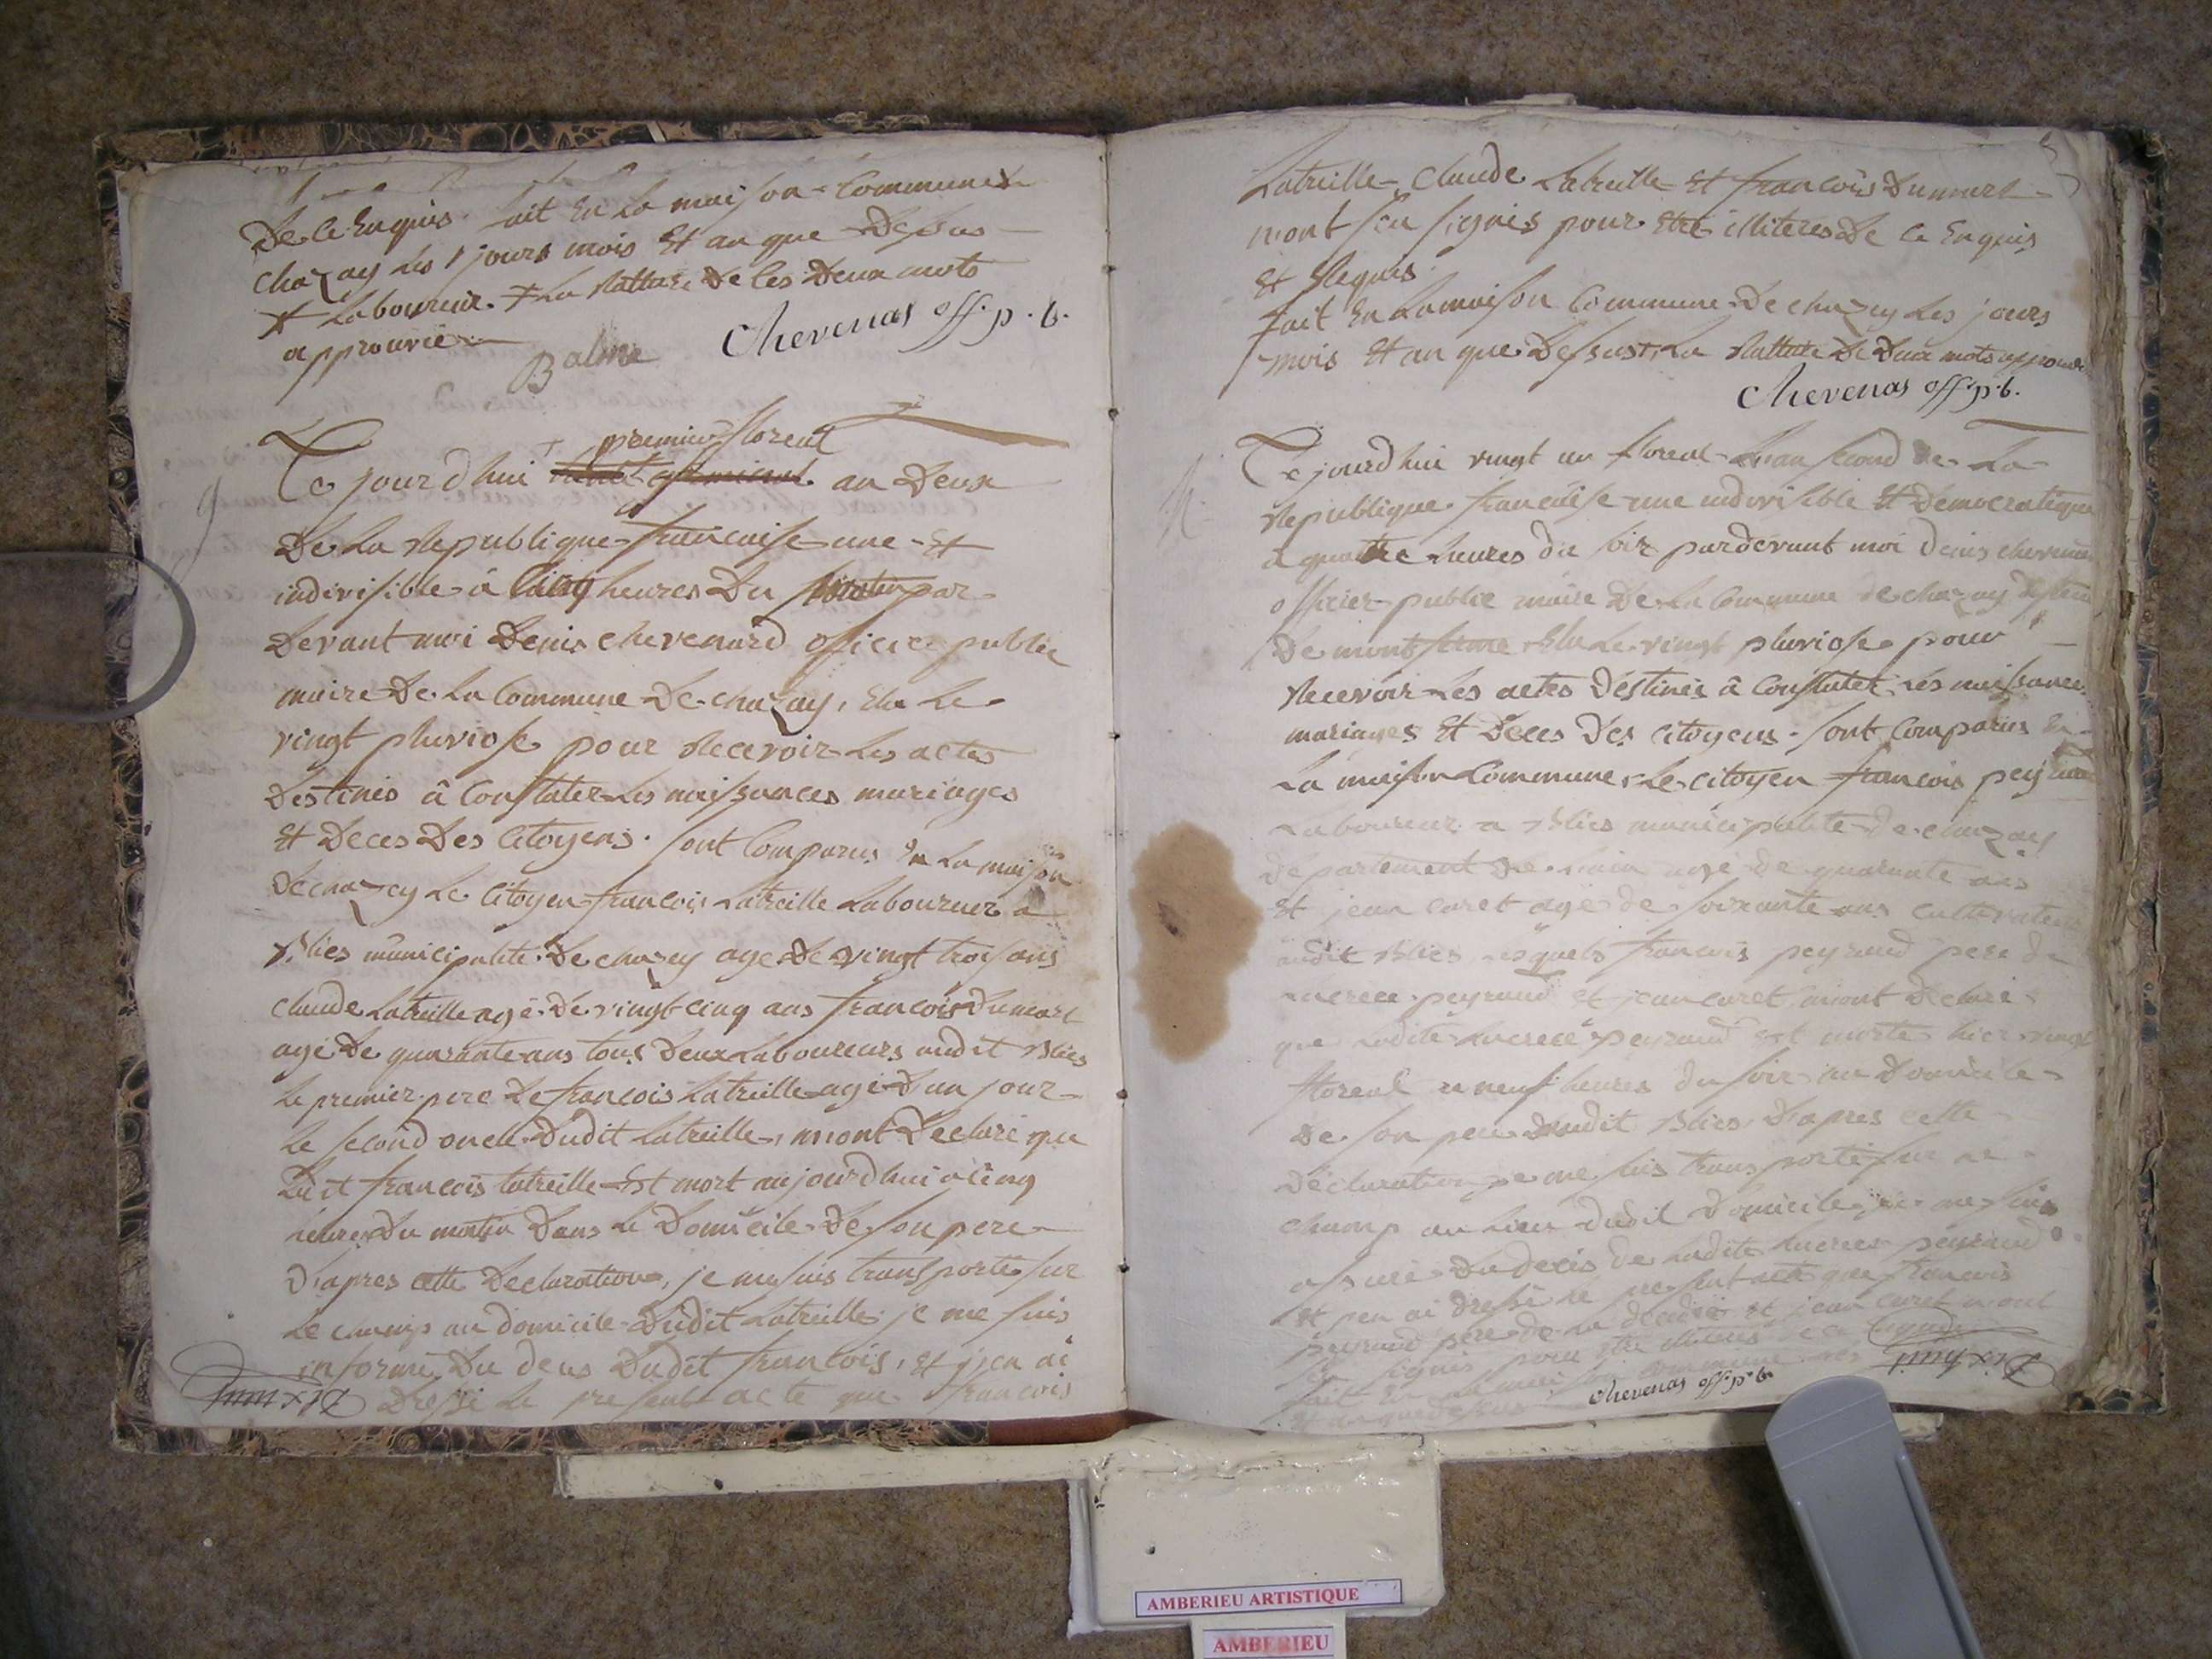 De ce Enquis. fait En la maison Commune de
chazey les jours mois Et an que Dessus
laboureur. La Rature De ces Deux mots
approuvé
Balme Chevenas off. p. b.
9
premier floreal
Ce jourd'hui an Deux
De La Republique francaise une Et
indivisible à Cinq heures Du par
Devant moi Denis chevenard officier public
maire De La Commune De chazey, Elu Le
vingt pluviose pour Recevoir Les actes
Destinés â Constater Les naissances mariages
Et Deces Des Citoyens. sont Comparus En La maison
De chazey Le Citoyen francois Latreille Laboureur a
Blies municipalité De chazey agé De vingt trois ans
claude Latreille agé De vingt cinq ans francois Dumart
agé De quarante ans tous Deux Laboureurs audit Blies
Le premier pere De francois Latreille agé D'un jour
Le second oncle Dudit Latreille, mont Declaré que
Ledit francois Latreille Est mort aujourdhui a Cinq
heures Du matin Dans Le Domicile De son pere
D'apres cette Declaration, je me suis transporté sur
Le champ au domicile Dudit Latreille je me suis
informé Du deces Dudit francois, Et j'en ai
Dressé Le present acte que francois
Dix huit
5
Latreille Claude Latreille Et francois Dumart
n'ont seu signés pour Etre illiterés De ce Enquis
Et Requis.
fait En La maison Commune De chazey Les jours
mois Et an que Dessus La Rature De Deux mots approuvé
Chevenas off. p. b.
Ce jourd'hui vingt un floreal L'an second De La
Republique francaise une indivisible Et Democratique
a quatre heures du soir pardevant moi Denis chevenard
officier public maire De La Commune de chazey
De montferme Elu Le vingt pluviose pour
Recevoir Les actes Déstinés â Constater Les naissances
mariages Et Deces Des Citoyens. sont Comparus En
La maison Commune Le citoyen francois peyraud
Laboureur a Blies municipalité de chazey
Departement De L'ain agé de quarante ans
Et jean curet agé de soixante ans cultivateur
audit Blies, Lesquels francois peyraud pere de
Lucrece peyraud et jean curet m'ont Declaré
que Ladite Lucrece peyraud est morte hier vingt
floreal a neuf heures du soir au Domicile
De son pere audit Blies, D'apres cette
Declaration je me suis transporté sur le
champ au Lieu dudit Domicile, je me suis
assuré Du decés de Ladite Lucrece peyraud
Et j'en ai Dressé Le present acte que francois
peyraud pere de La décédée et jean curet n'ont
seu signés pour etre illiterés ce
fait En La maison commune les
Et an que dessus Chevenas off. p. b.
Dix huit
AMBERIEU ARTISTIQUE
AMBERIEU